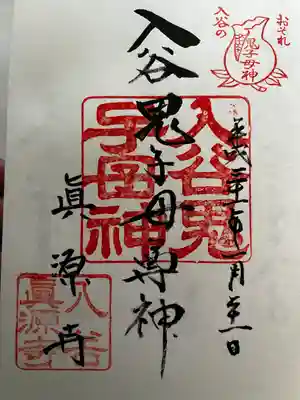 おそれ
入谷の
鬼子母神
平成二十
一月
一日
入谷鬼子母尊神
眞源寺
入谷鬼
子母神
入谷
眞源寺